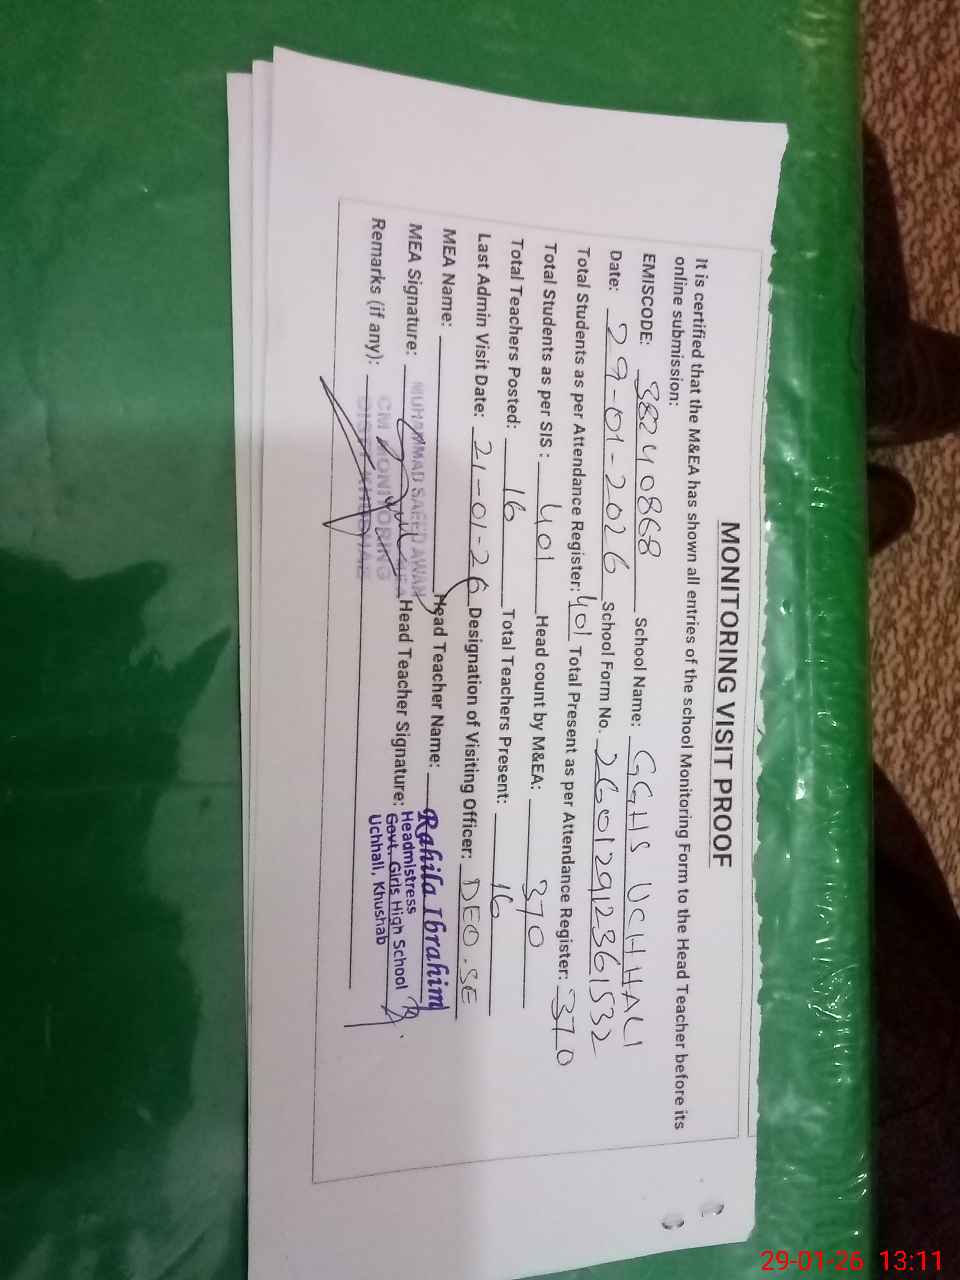 MONITORING VISIT PROOF
It is certified that the M&EA has shown all entries of the school Monitoring Form to the Head Teacher before its
online submission:
EMISCODE: 38240868 School Name: GGHS UCHHALI
Date: 29-01-2026 School Form No. 2601292361532
Total Students as per Attendance Register: 401 Total Present as per Attendance Register: 370
Total Students as per SIS : 401 Head count by M&EA: 370
Total Teachers Posted: 16 Total Teachers Present: 16
Last Admin Visit Date: 21-01-26 Designation of Visiting Officer: DEO.SE
MEA Name: Head Teacher Name: Rahila Ibrahim
MEA Signature: MUHAMMAD SAEED AWAN Head Teacher Signature: Headmistress
Govt. Girls High School
Uchhali, Khushab
Remarks (if any): CM MONITORING
DISTT. KHUSHAB
29-01-26 13:11